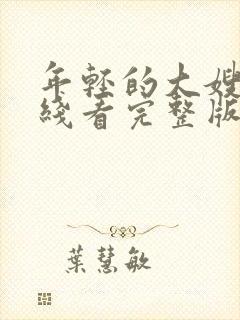 年轻的大嫂
线看完整版
葉慧敏